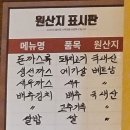 원산지 표시판
메뉴명 품목 원산지
돈까스류 돼지고기 국내산
생선까스 어가살 베트남
새우까스 새우
배추김치 배추 국내산
고추가루
쌀밥 쌀